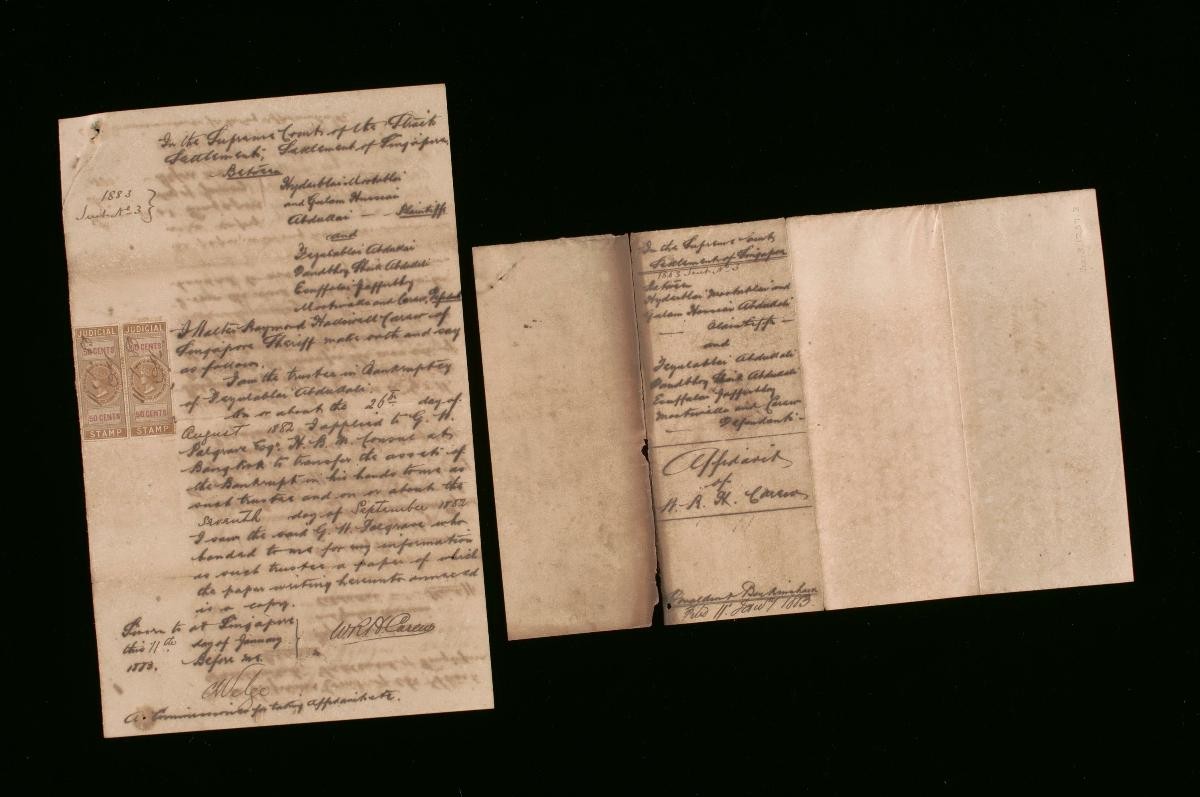 In the Supreme Court of the Strait
Settlements, Settlement of Singapore,
Between
Hyderbhai Mootabhai
and Gulam Hussai
Abdullai — Plaintiffs
and
Abdullai
Shaik Abdulali
Esuffalai Jafferbhoy
Mootwialla and Carew, Defendants
1883
Suit No 3
I Walter Raymond Hadowell Carew of
Singapore Sheriff make oath and say
as follows.
I am the trustee in Bankruptcy
of Abdulali.
On or about the 26th day of
August 1882 I applied to G. H.
Palgrave Esqr H. B. M. Consul at
Bangkok to transfer the assets of
the Bankrupt in his hands to me as
such trustee and on or about the
seventh day of September 1882
I saw the said G. H. Palgrave who
handed to me for my information
as such trustee a paper of which
the paper writing hereunto annexed
is a copy.
Sworn to at Singapore
this 11th day of January
1883. Before me.
WRH Carew
A. Commissioner for taking Affidavits etc.
JUDICIAL
50 CENTS
50 CENTS
STAMP
JUDICIAL
50 CENTS
50 CENTS
STAMP
In the Supreme Court
Settlement of Singapore
1883 Suit No 3
Between
Hyderbhai Mootabhai and
Gulam Hussai Abdulali
— Plaintiffs —
and
Abdulali
Shaik Abdulali
Esuffalai Jafferbhoy
Mootwialla and Carew
— Defendants —
Affidavit
of
W. R. H. Carew
Donaldson & Burkinshaw
Filed 11 Jany 1883.